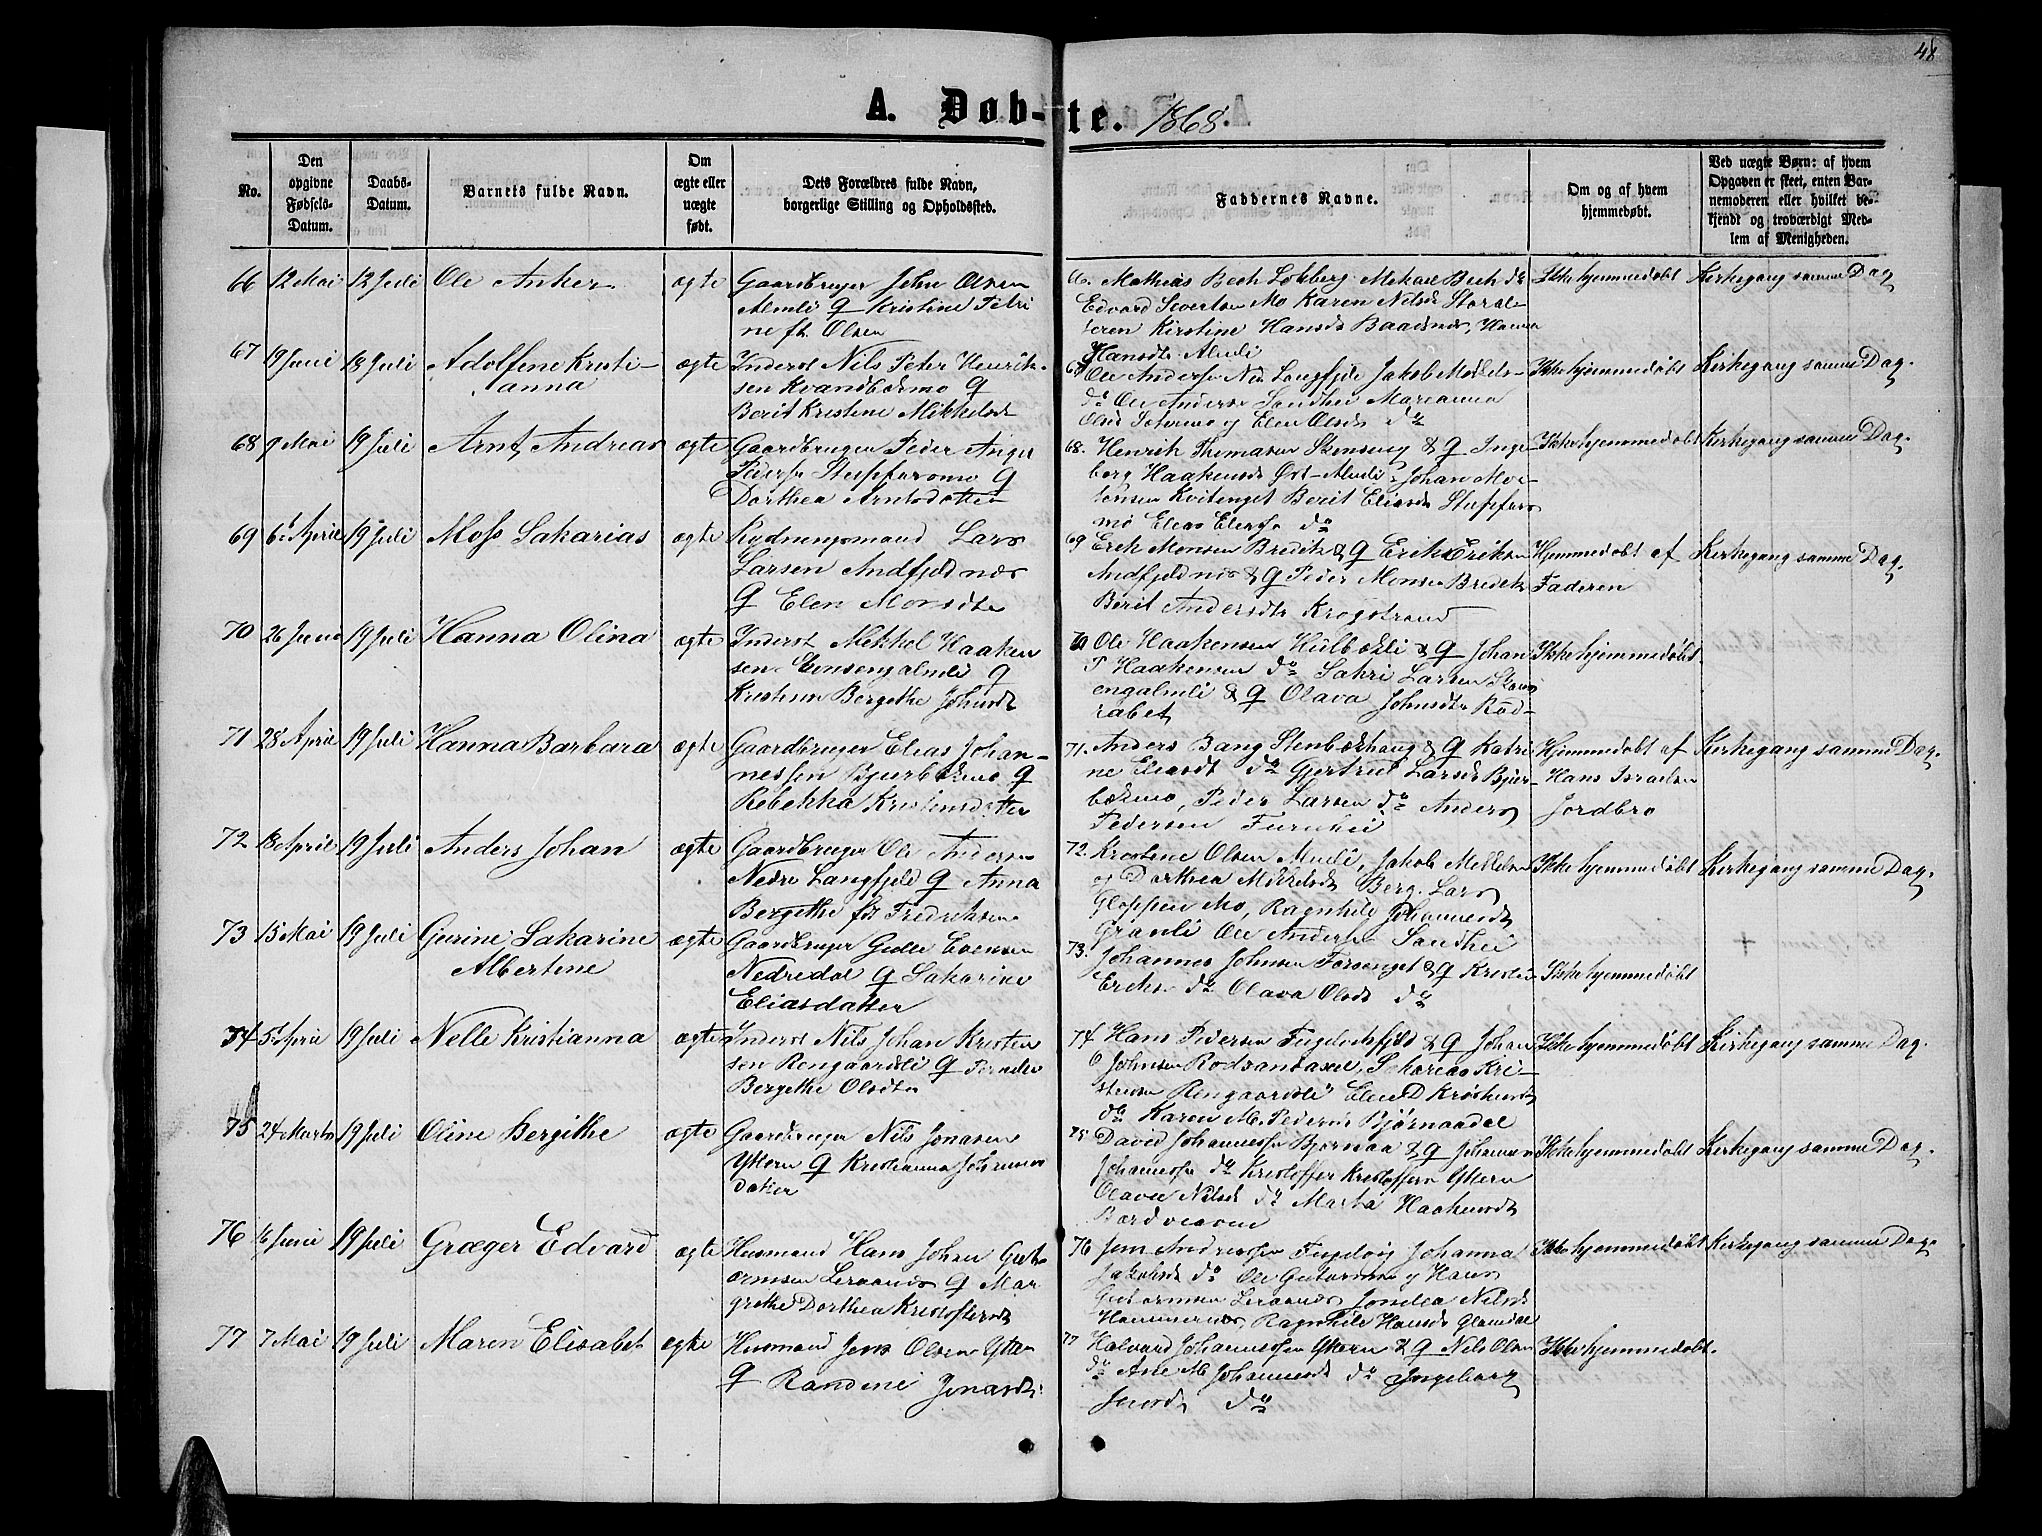 48
A. Døb-te. 1868
No.
Den opgivne Fødsels-Datum.
Daabs-Datum.
Barnets fulde Navn.
Om ægte eller uægte født.
Dets Forældres fulde Navn, borgerlige Stilling og Opholdssted.
Faddernes Navne.
Om og af hvem hjemmedøbt.
Ved uægte Børn: af hvem Opgaven er skeet, enten Barnemoderen eller hvilket bekjendt og troværdigt Medlem af Menigheden.
66 12 Mai 12 Juli Ole Anker ægte Gaardbruger John Olsen
Almli & Kristine Petri
ne ft. Olsen
66. Mathias Bech Løkberg Mikael Bech do
Edvard Sivertsen Mo Karen Nilsd Storal-
teren Kirstine Hansdr Baadsnes, Hanna
Hansdtr Almli
Ikke hjemmedøbt Kirkegang samme Dag
67 19 Juni 18 Juli Adolfine Kristi-
anna
ægte Inderst Nils Peter Henrik-
sen Kvandbækmo &
Berit Kristine Mikkelsdt
67 Ole Anders Ned Langfjeld Jakob Mellels-
do Ole Anders Sandhei Marianna
Olsd y Elen Olsdt do
Ikke hjemmedøbt Kirkegang samme Dag.
68 9 Mai 19 Juli Arnt Andreas ægte Gaardbruger Peder Anger
Peders Stupforsmo &
Dorthea Arntsdatter
68. Henrik Thomasen Stensvig & & Inge-
borg Haakensd Øst-Almli Johan Mor-
tensen Kvitenget Berit Eliasdr Stupfors
mo Elias Eliass do
Ikke hjemmedøbt Kirkegang samme Dag.
69 6 April 19 Juli Moss Sakarias ægte Rydningsmand Lars
Larsen Andfjeldnæs
& Elen Monsdtr
69 Erik Monsen Bredek & & Erik Eriksen
Andfjeldnæs & & Peder Monsen Bredek
Berit Andersdtr Krogstrand
Hjemmedøbt af
Faderen
Kirkegang samme Dag.
70 26 Juni 19 Juli Hanna Olina ægte Inderst Mikkel Haaken
sen Evensengalmli &
Kristine Bergithe Johnsdt
70 Ole Haakensen Hulbækli & & Johan
P Haakensen do Sakri Larsen Stens
engalmli & & Olava Johnsdtr Rød-
rabet
Ikke hjemmedøbt
71 28 April 19 Juli Hanna Barbara ægte Gaardbruger Elias Johan-
nessen Bjurbækmo &
Rebekka Kristinsdatter
71. Anders Bang Stenbækhaug & & Katri
ne Eliasdt do Gjertrud Larsdt Bjur-
bækmo, Peder Larsen do Anders
Pedersen Furuhei
Hjemmedøbt af
Hans Israelsen
Jordbro
Kirkegang samme Dag.
72 18 April 19 Juli Anders Johan ægte Gaardbruger Ole Andersen
Nedre Langfjeld & Anna
Bergithe fdt Fredriksen
72. Kristine Olsen Almli, Jakob Mellelsen
og Dorthea Mikkelsdt Berg. Lars
Gloppen Mo, Ragnhild Johannesdt
Granli Ole Anders Sandhei
Ikke hjemmedøbt Kirkegang samme Dag.
73 15 Mai 19 Juli Gurine Sakarine
Albertine
ægte Gaardbruger Gulle Evensen
Nedredal & Sakarine
Eliasdatter
73. Johannes Johnsen Forsenget & & Kristi
Eriks do Olava Olsdt do
Ikke hjemmedøbt
74 5 April 19 Juli Nelle Kristianna ægte Inderst Nils Johan Kristen
sen Rengaardsli & Pernille
Bergithe Olsdtr
74 Hans Pedersen Fugledfjeld & & Johan
O Johnsen Rodsandaasen, Sakarias Kri-
stensen Rengaardsli Elen D Kristensdt
do Karen M. Peders Bjørnaadal
Ikke hjemmedøbt Kirkegang samme Dag.
75 24 Marts 19 Juli Oline Bergithe ægte Gaardbruger Nils Jonasen
Yttern & Kristianna Johannes
datter
75 David Johannessen Bjørnaa & & Johannes
Johannessen do Kristoffer Kristoffersn Yttern
Olava Nilsd do Marta Haakensdt
Ikke hjemmedøbt Kirkegang samme Dag.
76 6 Juni 19 Juli Græger Edvard ægte Husmand Hans Johan Gut-
ormsen Leraanes & Mar
grethe Dorthea Kristoffersdt
76 Jens Andreassen Fuglevig Johanna
Jakobsd do Ole Gutormsen y Hans
Gutormsen Leraanes Jondea Nilsd
Hammernes, Ragnhild Hansd Glomdal
Ikke hjemmedøbt Kirkegang samme Dag.
77 7 Mai 19 Juli Maren Elisabet ægte Husmand Jens Olsen Ytter
& Randine Jonasdt
77 Halvard Johannessen Yttern & & Nils Olsen
do Ane M Johannesdt do Ingeborg
Jensdt do
Ikke hjemmedøbt.